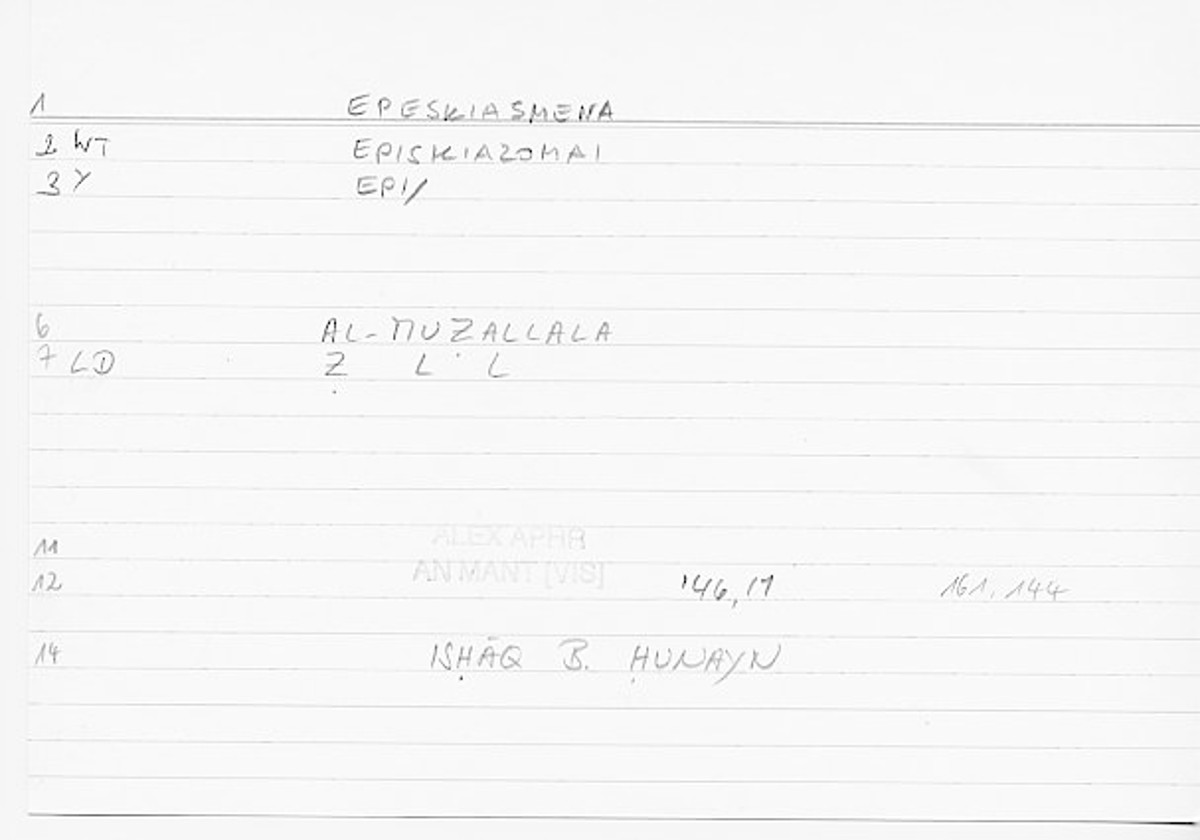 1 EPESKIASMENA
2 WT EPISKIAZOMAI
3 Y EPI/
6 AL-MUẒALLALA
7 LD Ẓ L L
11 ALEX APHR
12 AN MANT [VIS] 146,17 161.144
14 ISḤĀQ B. ḤUNAYN